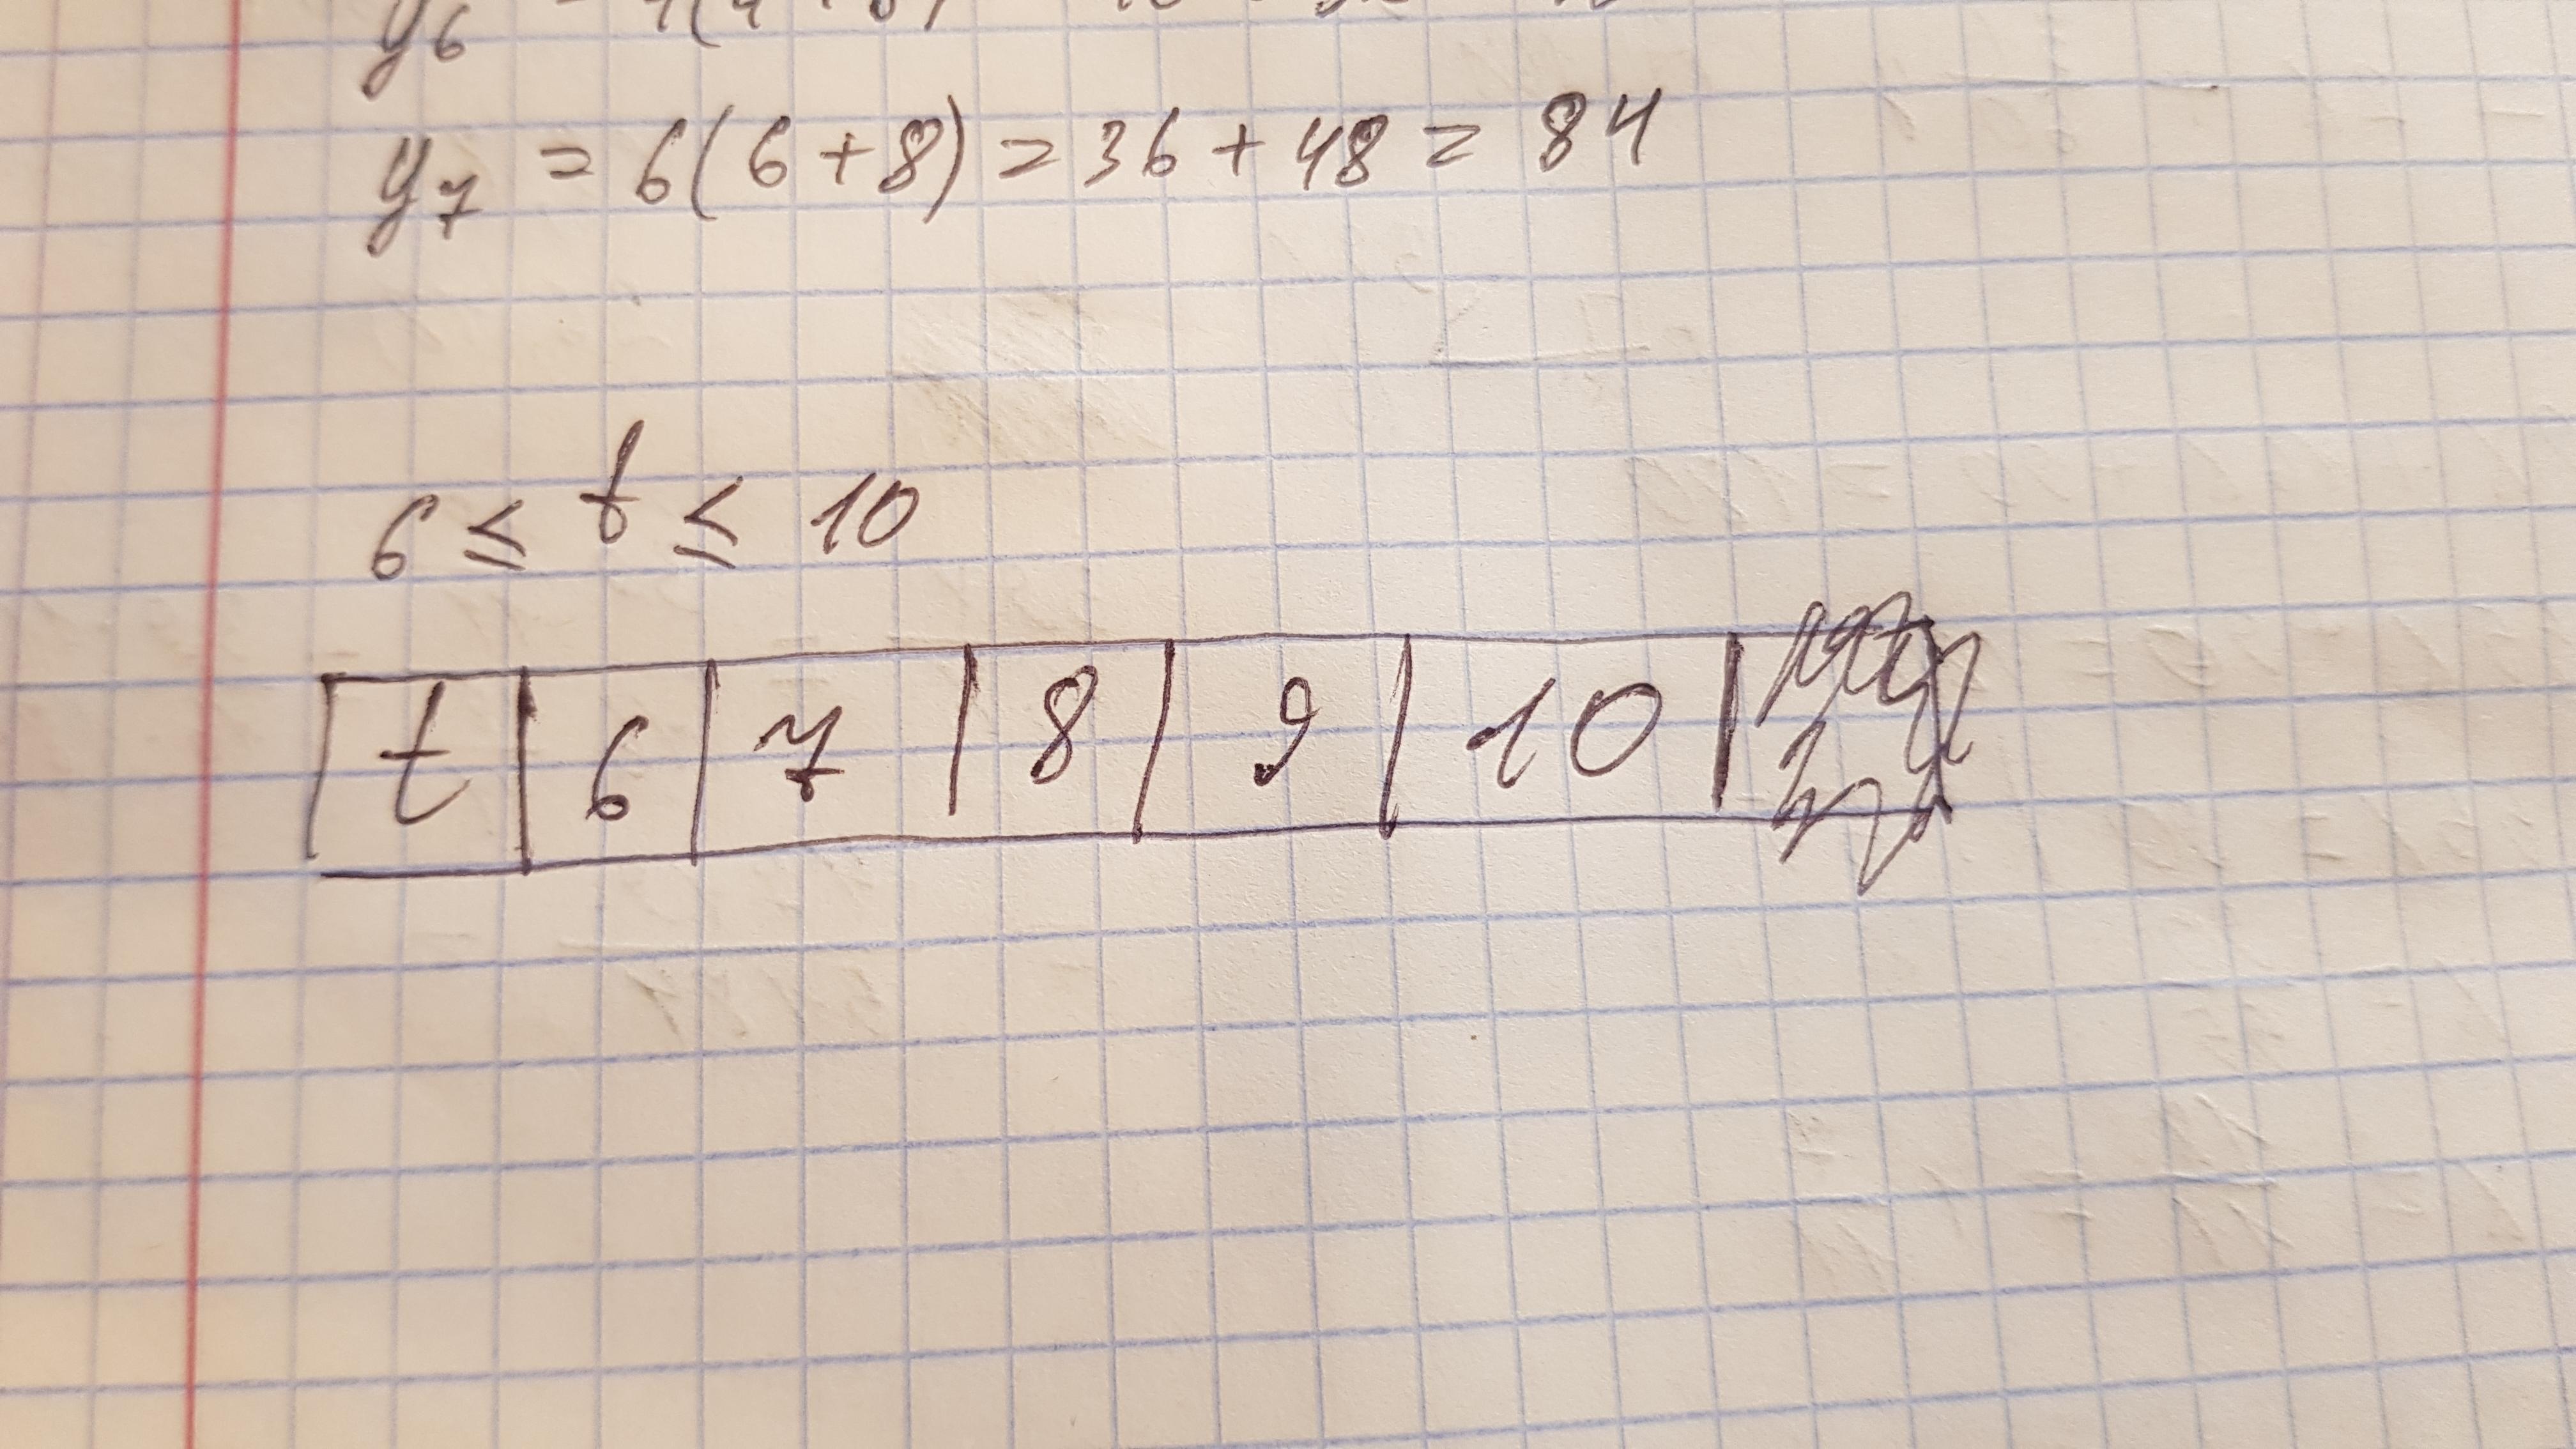 y6 = 4(4+8)
y7 = 6(6+8) = 36 + 48 = 84
6 ≤ t ≤ 10
t | 6 | 7 | 8 | 9 | 10